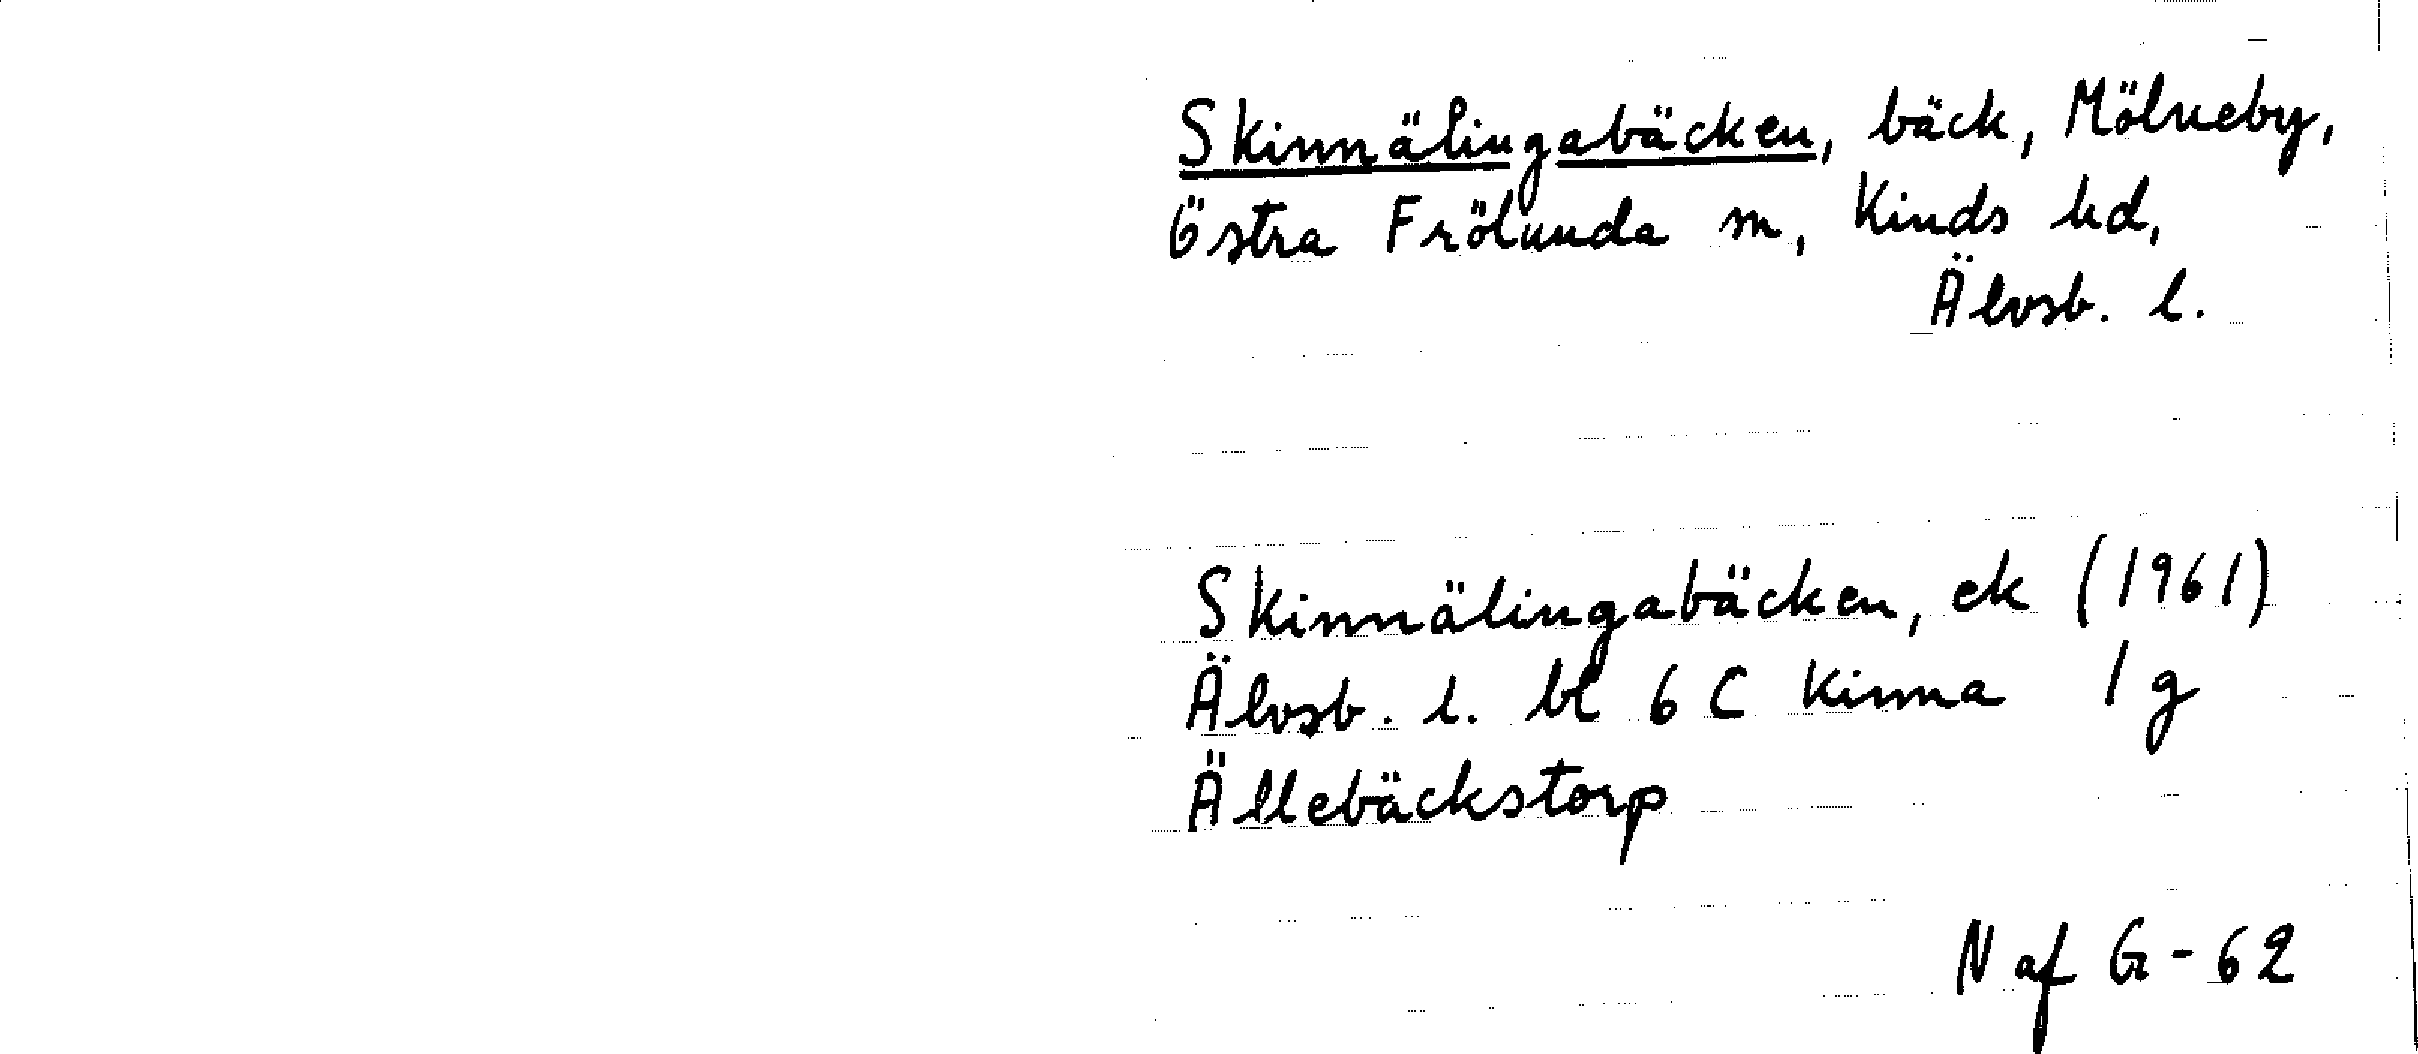 Skinnälingabäcken, bäck, Mölneby,
Östra Frölunda sn, Kinds hd,
Älvsb. l.
Skinnälingabäcken, ek (1961)
Älvsb. l. bl 6 C Kinna 1 g
Ällebäckstorp
N af G-62